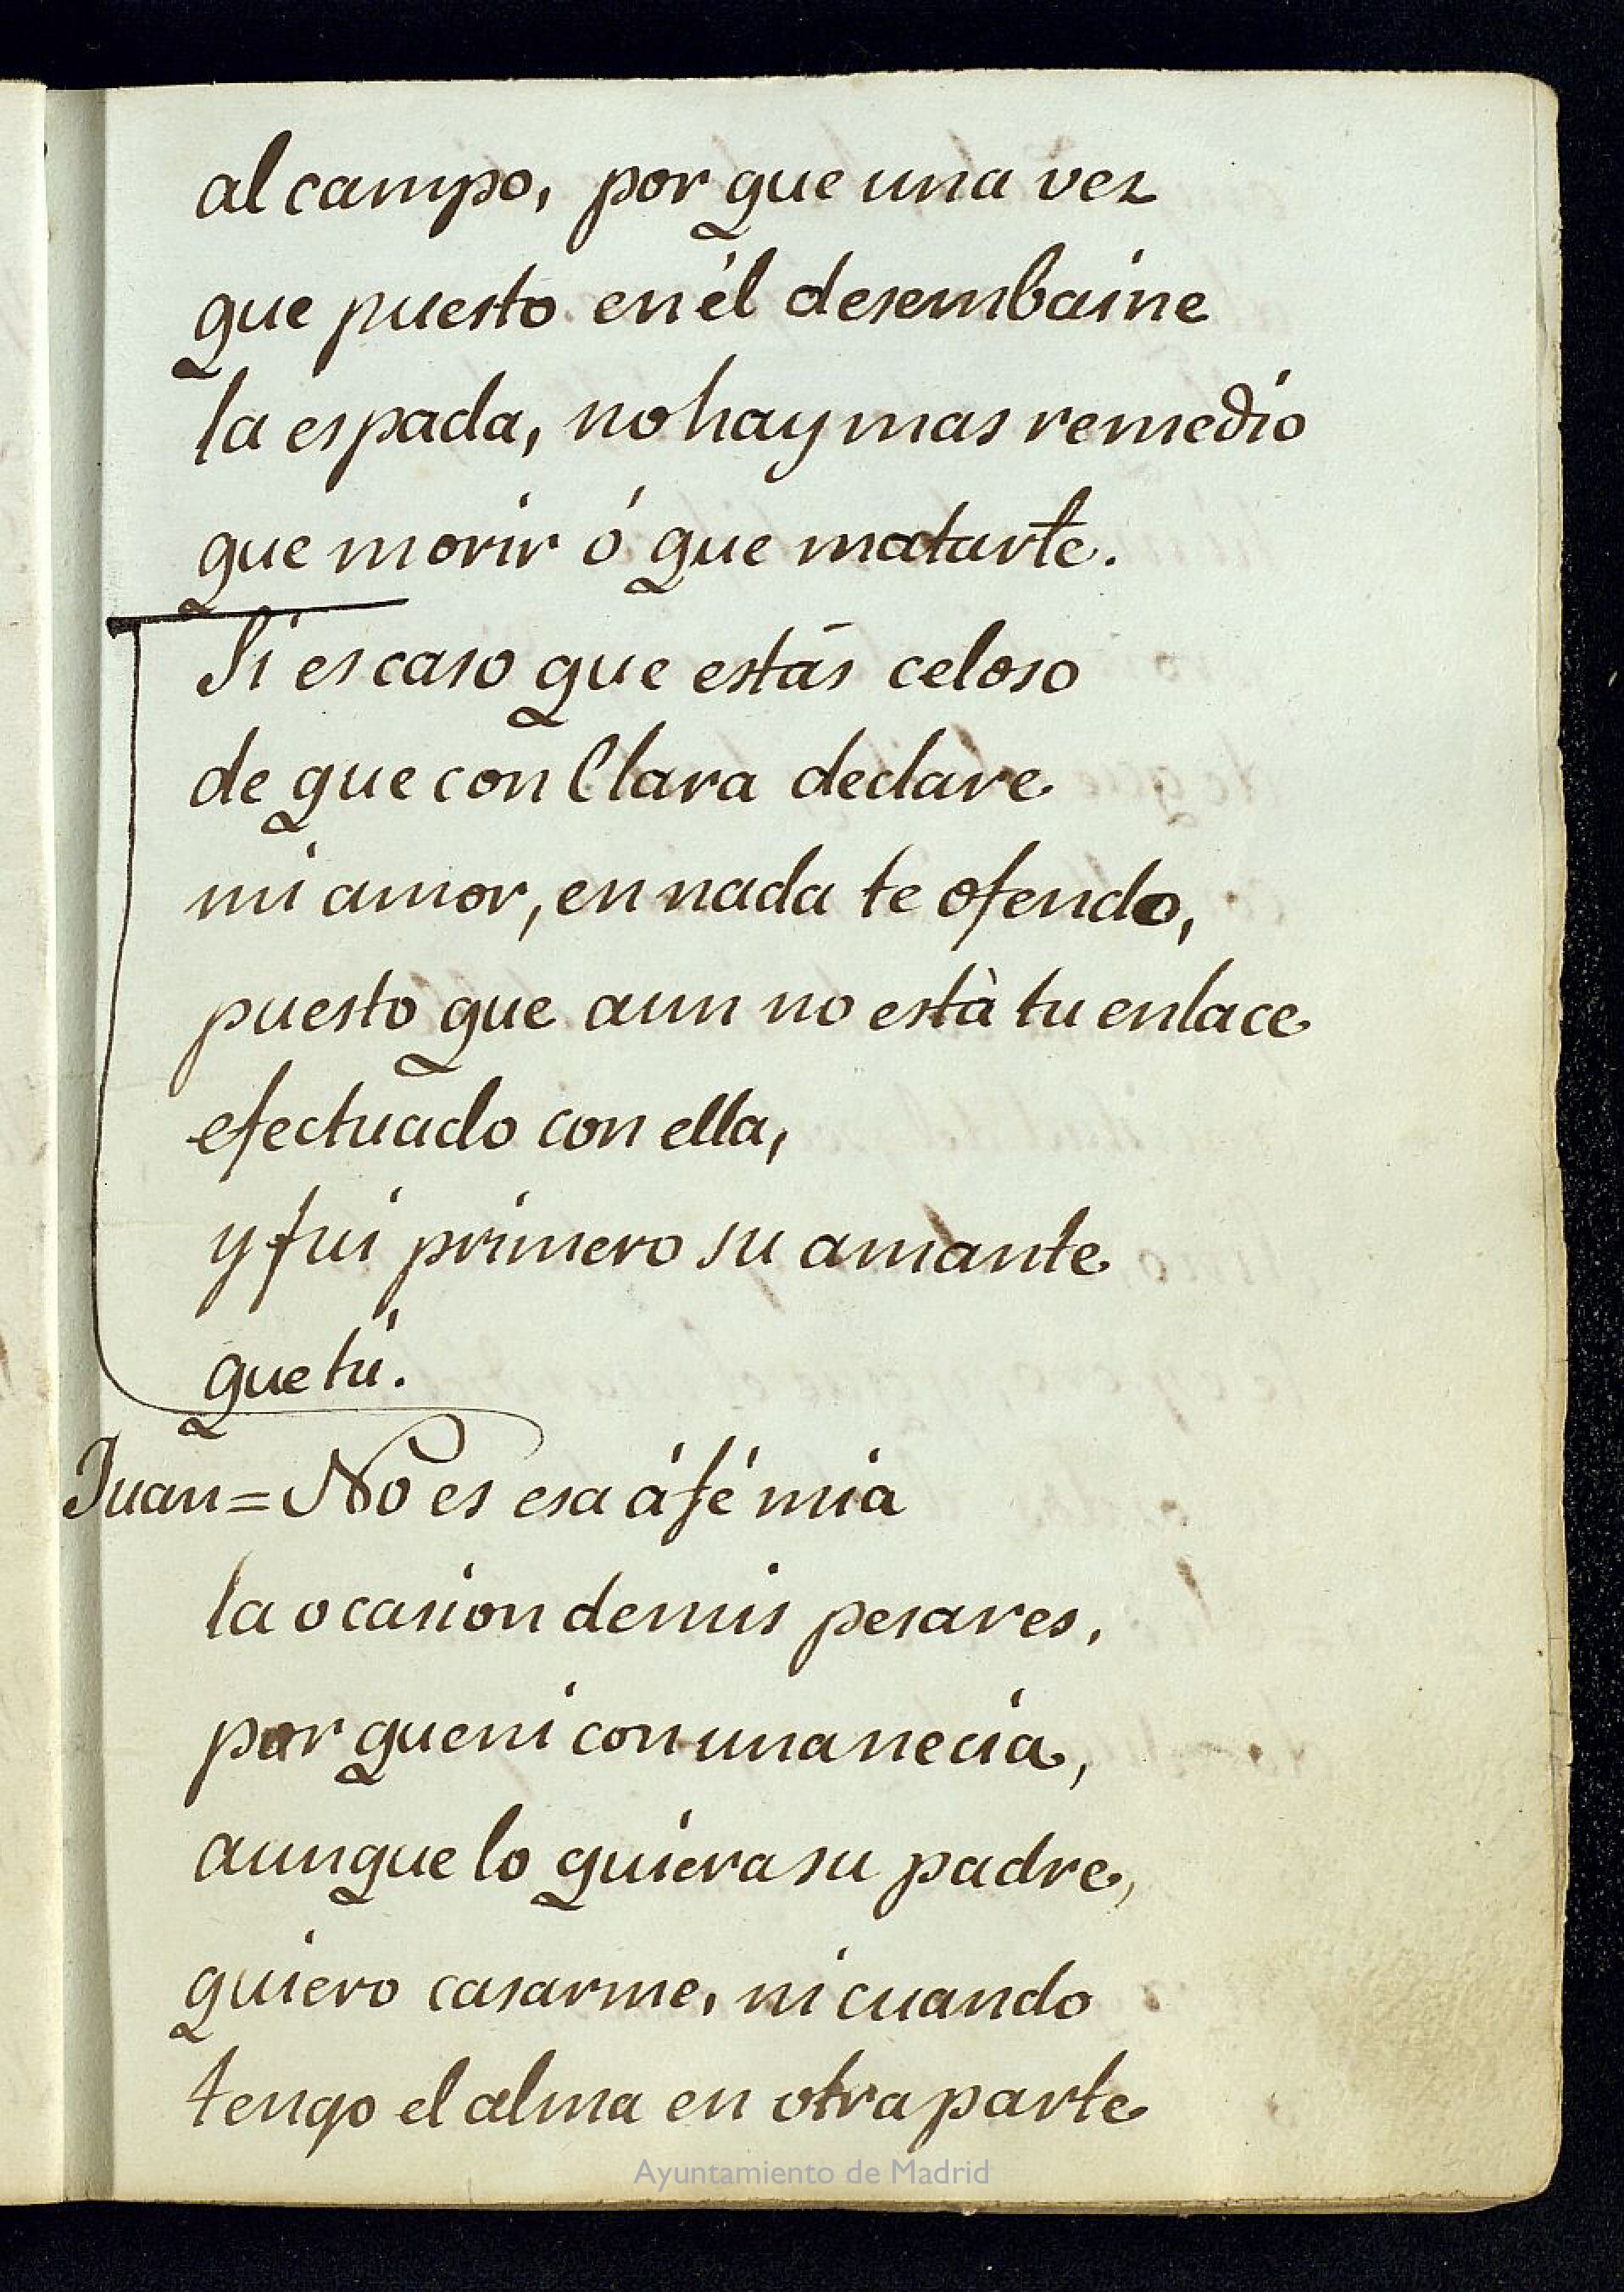 al campo, por que una vez
que puesto en él desembaine
la espada, no hay mas remedio
que morir ó que matarte.
Si es caso que estás celoso
de que con Clara declare
mi amor, en nada te ofendo,
puesto que aun no está tu enlace
efectuado con ella,
y fui primero su amante
que tú.
Juan = No es esa á fé mia
la ocasion de mis pesares,
por que ni con una necia,
aunque lo quiera su padre,
quiero casarme, ni cuando
tengo el alma en otra parte
Ayuntamiento de Madrid